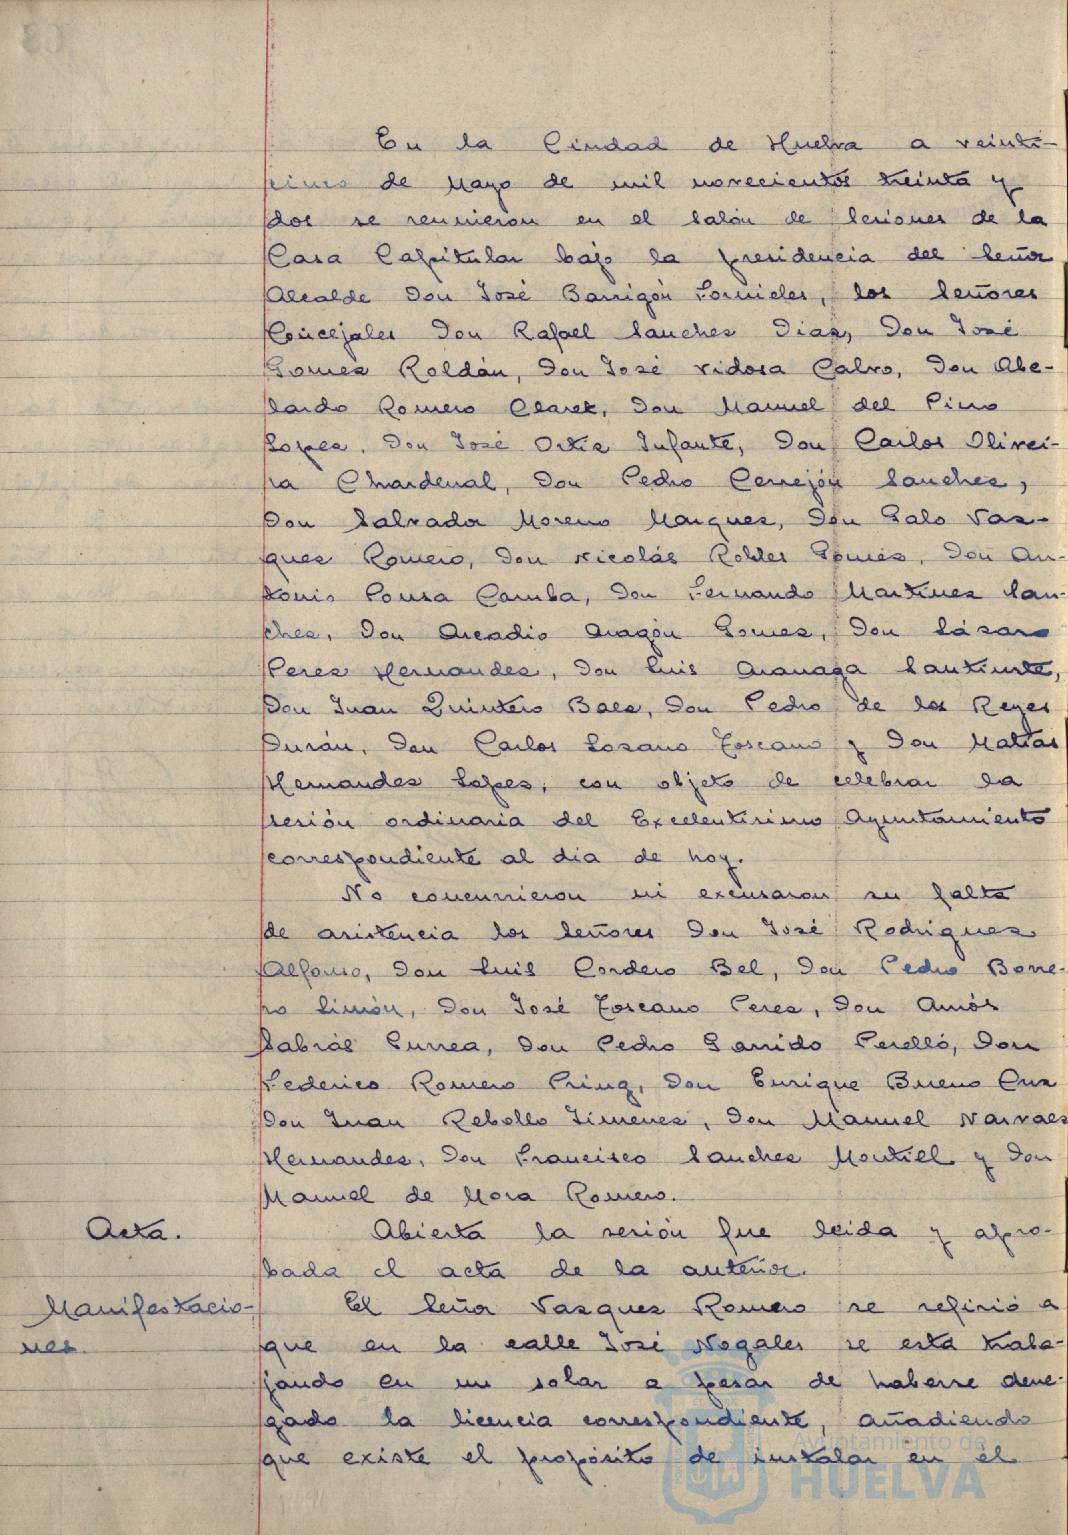 En la Ciudad de Huelva a veinti-
cinco de Mayo de mil novecientos treinta y
dos se reunieron en el salón de sesiones de la
Casa Capitular bajo la presidencia del Señor
Alcalde Don José Barrigón Fornieles, los Señores
Concejales Don Rafael Sanchez Diaz, Don José
Gomez Roldán, Don José Vidosa Calvo, Don Abe-
lardo Romero Claret, Don Manuel del Pino
Lopez, Don José Ortiz Infante, Don Carlos Olivei-
ra Chardenal, Don Pedro Cerrejón Sanchez,
Don Salvador Moreno Marquez, Don Galo Vaz-
quez Romero, Don Nicolás Robles Gomez, Don An-
tonio Pousa Camba, Don Fernando Martinez San-
chez, Don Arcadio Aragón Gomez, Don Lázaro
Perez Hernandez, Don Luis Aranaga Santiuste,
Don Juan Quintero Baez, Don Pedro de los Reyes
Durán, Don Carlos Lozano Toscano y Don Matias
Hernandez Lopez, con objeto de celebrar la
sesión ordinaria del Excelentisimo Ayuntamiento
correspondiente al dia de hoy.
No concurrieron ni excusaron su falta
de asistencia los Señores Don José Rodriguez
Alfonso, Don Luis Cordero Bel, Don Pedro Borre-
ro Limón, Don José Toscano Perez, Don Amós
Sabrás Gurrea, Don Pedro Garrido Perelló, Don
Federico Romero Don Enrique Bueno Cruz
Don Juan Rebollo Jimenez, Don Manuel Narvaez
Hernandez, Don Francisco Sanchez Montiel y Don
Manuel de Mora Romero.
Acta.
Abierta la sesión fue leida y apro-
bada el acta de la anterior.
Manifestacio-
nes.
El Señor Vazquez Romero se refirió a
que en la calle José Nogales se está traba-
jando en un solar a pesar de haberse dene-
gado la licencia correspondiente, añadiendo
que existe el propósito de instalar en él
Ayuntamiento de
HUELVA